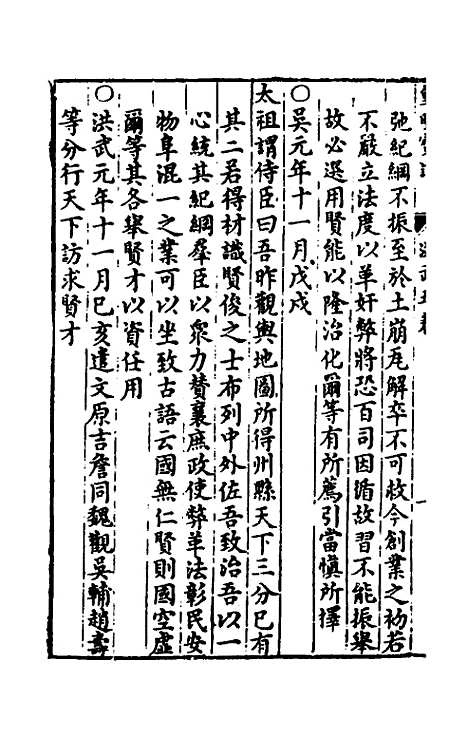 弛紀綱不振至於土崩瓦解卒不可救今創業之初若
不嚴立法度以革奸弊將恐百司因循故習不能振舉
故必選用賢能以隆治化爾等有所薦引當慎所擇
○吳元年十一月戊戌
太祖謂侍臣曰吾昨觀輿地圖所得州縣天下三分已有
其二若得材識賢俊之士布列中外佐吾致治吾以一
心統其紀綱羣臣以衆力賛襄庶政使弊革法彰民安
物阜混一之業可以坐致古語云國無仁賢則國空虛
爾等其各舉賢才以資任用
○洪武元年十一月巳亥遣文原吉詹同魏觀吳輔趙壽
等分行天下訪求賢才